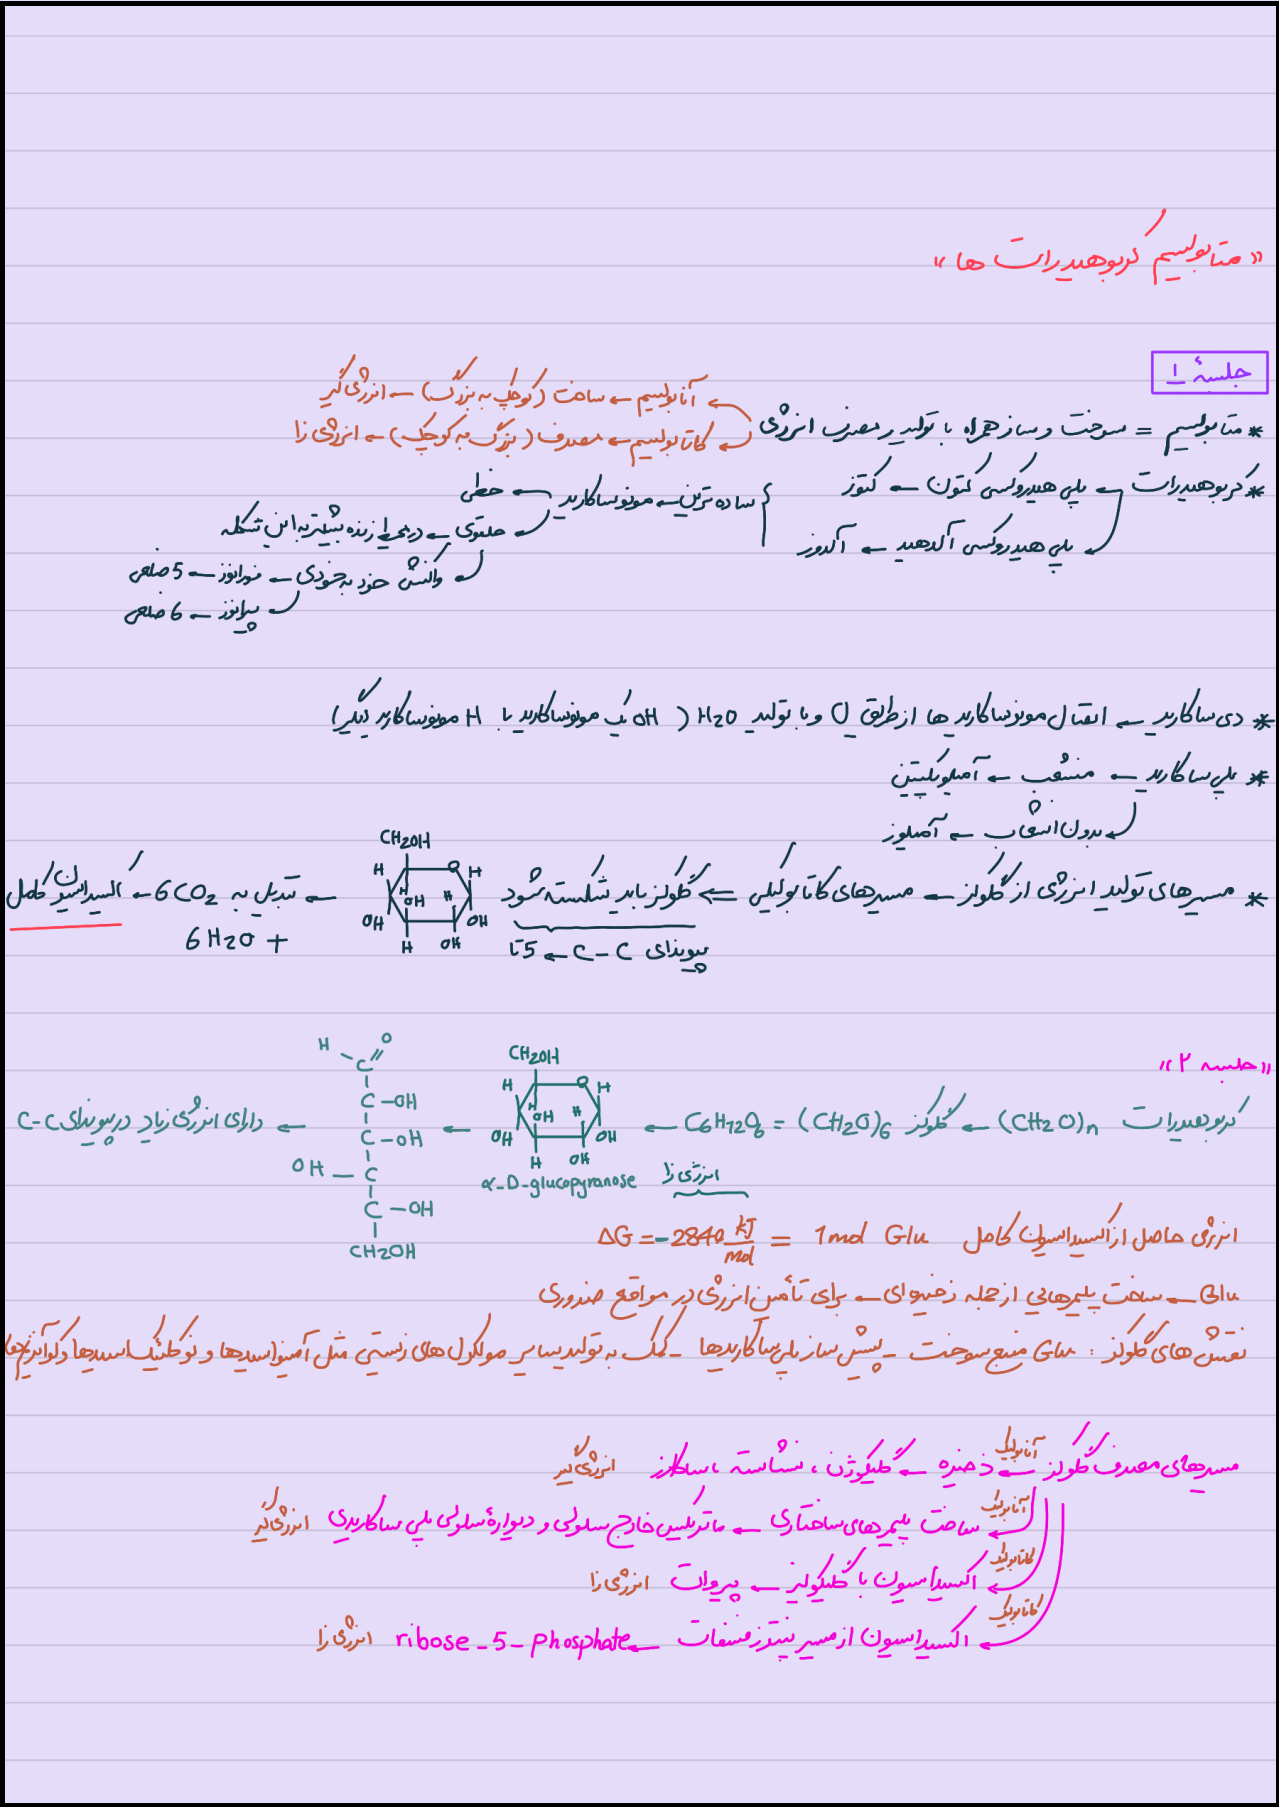 «متابولیسم کربوهیدرات ها»
جلسهٔ ۱
* متابولیسم = سوخت و ساز همراه با تولید و مصرف انرژی
آنابولیسم ← ساخت (کوچک به بزرگ) ← انرژی گیر
کاتابولیسم ← مصرف (بزرگ به کوچک) ← انرژی زا
* کربوهیدرات ← پلی هیدروکسی کتون ← کتوز
پلی هیدروکسی آلدهید ← آلدوز
ساده ترین ← مونوساکارید ← خطی
حلقوی ← در محیط زنده بیشتر به این شکله
واکنش خود به خودی ← فورانوز ← 5 ضلعی
پیرانوز ← 6 ضلعی
* دی ساکارید ← اتصال مونوساکارید ها از طریق O و با تولید H2O ( OH یک مونوساکارید با H مونوساکارید دیگر)
* پلی ساکارید ← منشعب ← آمیلوپکتین
بدون انشعاب ← آمیلوز
* مسیرهای تولید انرژی از گلوکز ← مسیرهای کاتابولیکی ⇐ گلوکز باید شکسته شود ← تبدیل به 6CO2 ← اکسیداسیون کامل
+ 6H2O
پیوندای C-C ← 5 تا
CH2OH
H O H
H
OH H
OH OH
H OH
«جلسه ۲»
کربوهیدرات (CH2O)n ← گلوکز C6H12O6 = (CH2O)6 ← ← ← دارای انرژی زیاد در پیوندای C-C
CH2OH
H O H
H
OH H
OH OH
H OH
α-D-glucopyranose
H O
C
C-OH
C-OH
OH-C
C-OH
CH2OH
انرژی زا
انرژی حاصل از اکسیداسیون کامل 1mol Glu = ΔG = -2840 kJ/mol
Glu ← ساخت پلیمرهایی از جمله ذخیره ای ← برای تأمین انرژی در مواقع ضروری
نقش های گلوکز : Glu منبع سوخت - پیش ساز پلی ساکاریدها - کمک به تولید سایر مولکول های زیستی مثل آمینواسیدها و نوکلئیک اسیدها و کوآنزیم ها
مسیرهای مصرف گلوکز آنابولیک ← ذخیره ← گلیکوژن ، نشاسته ، ساکارز انرژی گیر
آنابولیک ← ساخت پلیمرهای ساختاری ← ماتریکس خارج سلولی و دیوارهٔ سلولی پلی ساکاریدی انرژی گیر
کاتابولیک ← اکسیداسیون با گلیکولیز ← پیرووات انرژی زا
کاتابولیک ← اکسیداسیون از مسیر پنتوز فسفات ← ribose-5-phosphate انرژی زا